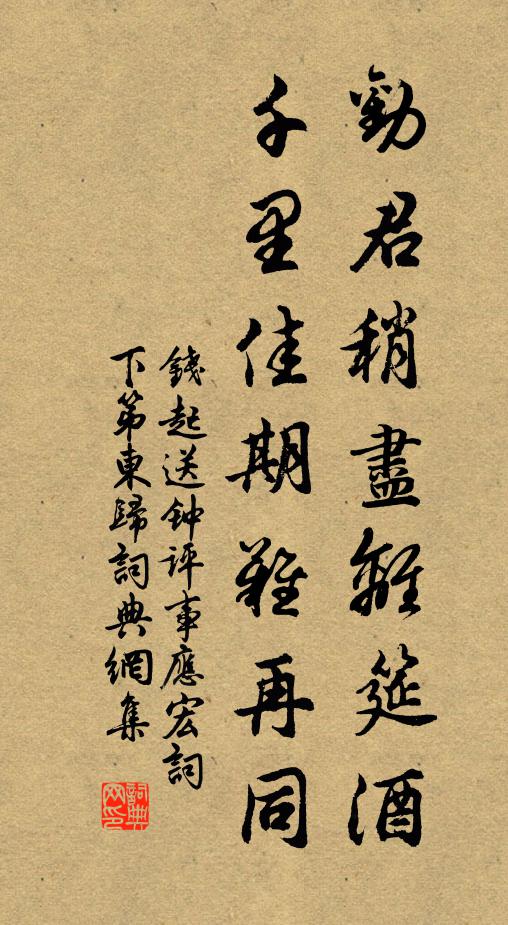 勸君稍盡離筵酒
千里佳期難再同
錢起送钟评事應宏詞
下第東歸詞典網集
詞典
网印